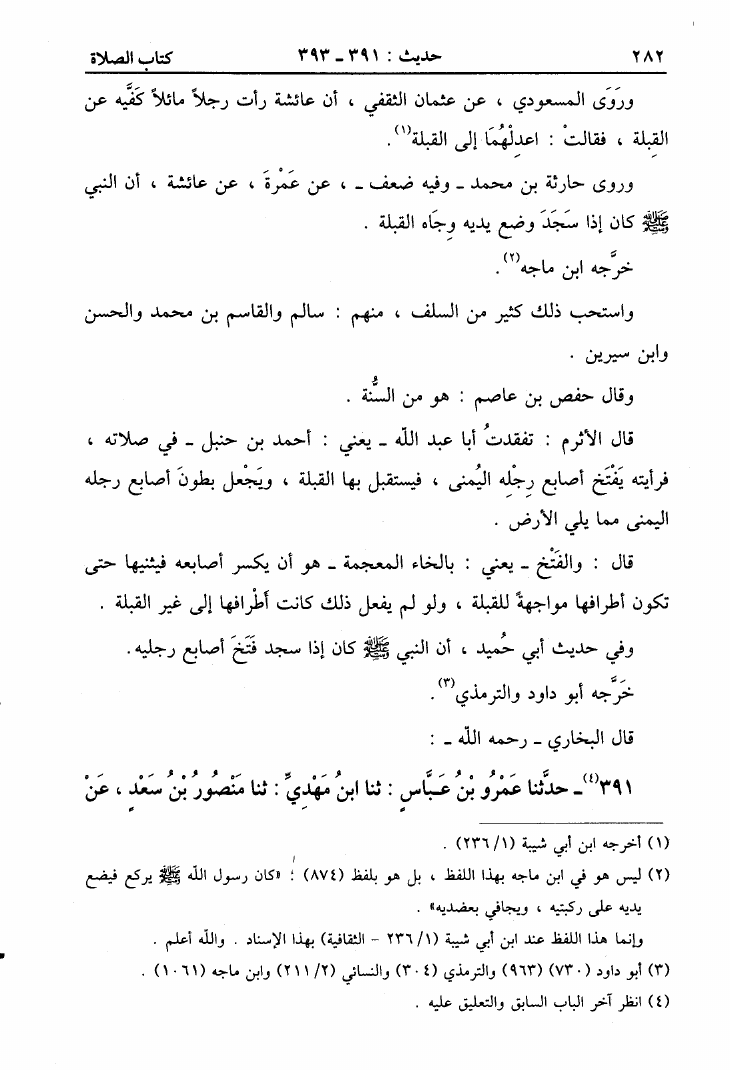 ٢٨٢ حديث : ٣٩١ ـ ٣٩٣ كتاب الصلاة
وروَى المسعودي ، عن عثمان الثقفي ، أن عائشة رأت رجلاً مائلاً كَفَّيه عن
القِبلة ، فقالتْ : اعدِلْهُمَا إلى القبلة(١).
وروى حارثة بن محمد ـ وفيه ضعف ـ ، عن عَمْرةَ ، عن عائشة ، أن النبي
ﷺ كان إذا سَجَدَ وضع يديه وِجَاه القبلة .
خرَّجه ابن ماجه(٢).
واستحب ذلك كثير من السلف ، منهم : سالم والقاسم بن محمد والحسن
وابن سيرين .
وقال حفص بن عاصم : هو من السُّنة .
قال الأثرم : تفقدتُ أبا عبد الله ـ يعني : أحمد بن حنبل ـ في صلاته ،
فرأيته يَفْتَخ أصابع رِجْلِه اليُمنى ، فيستقبل بها القبلة ، ويَجْعل بطونَ أصابع رجله
اليمنى مما يلي الأرض .
قال : والفَتْخ ـ يعني : بالخاء المعجمة ـ هو أن يكسر أصابعه فيثنيها حتى
تكون أطرافها مواجهةً للقبلة ، ولو لم يفعل ذلك كانت أَطْرافها إلى غير القبلة .
وفي حديث أبي حُميد ، أن النبي ﷺ كان إذا سجد فَتَخَ أصابع رجليه.
خَرَّجه أبو داود والترمذي(٣).
قال البخاري ـ رحمه الله ـ :
٣٩١(٤)ـ حدَّثنا عَمْرُو بْنُ عَبَّاسٍ : ثنا ابنُ مَهْدِيٍّ : ثنا مَنْصُورُ بْنُ سَعْدٍ ، عَنْ
(١) أخرجه ابن أبي شيبة (١/ ٢٣٦) .
(٢) ليس هو في ابن ماجه بهذا اللفظ ، بل هو بلفظ (٨٧٤) ؛ «كان رسول الله ﷺ يركع فيضع
يديه على ركبتيه ، ويجافي بعضديه» .
وإنما هذا اللفظ عند ابن أبي شيبة (١/ ٢٣٦ - الثقافية) بهذا الإسناد . والله أعلم .
(٣) أبو داود (٧٣٠) (٩٦٣) والترمذي (٣٠٤) والنسائي (٢/ ٢١١) وابن ماجه (١٠٦١) .
(٤) انظر آخر الباب السابق والتعليق عليه .